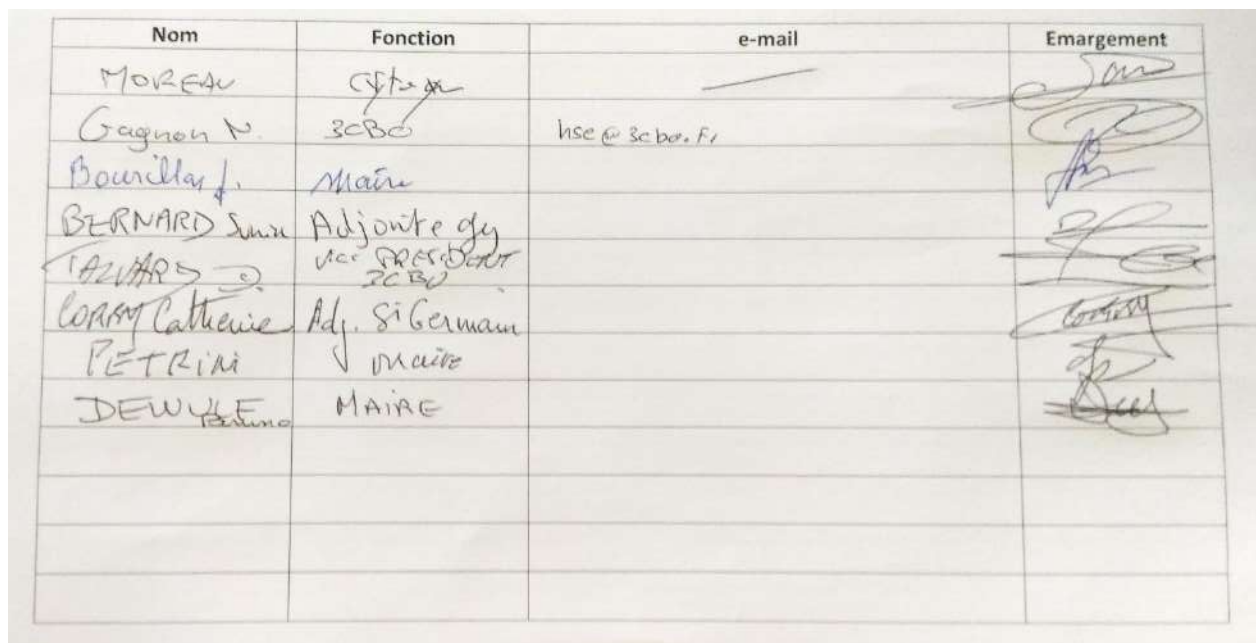 Nom Fonction e-mail Emargement
MOREAU
Gagnon N. 3CBO hse@3cbo.fr
Bourillon J. Maire
BERNARD Adjointe
TALVARD D. Vice PRESIDENT
3CBO
CORMY Catherine Adj. St Germain
PETRINI Maire
DEWULF MAIRE
Bruno